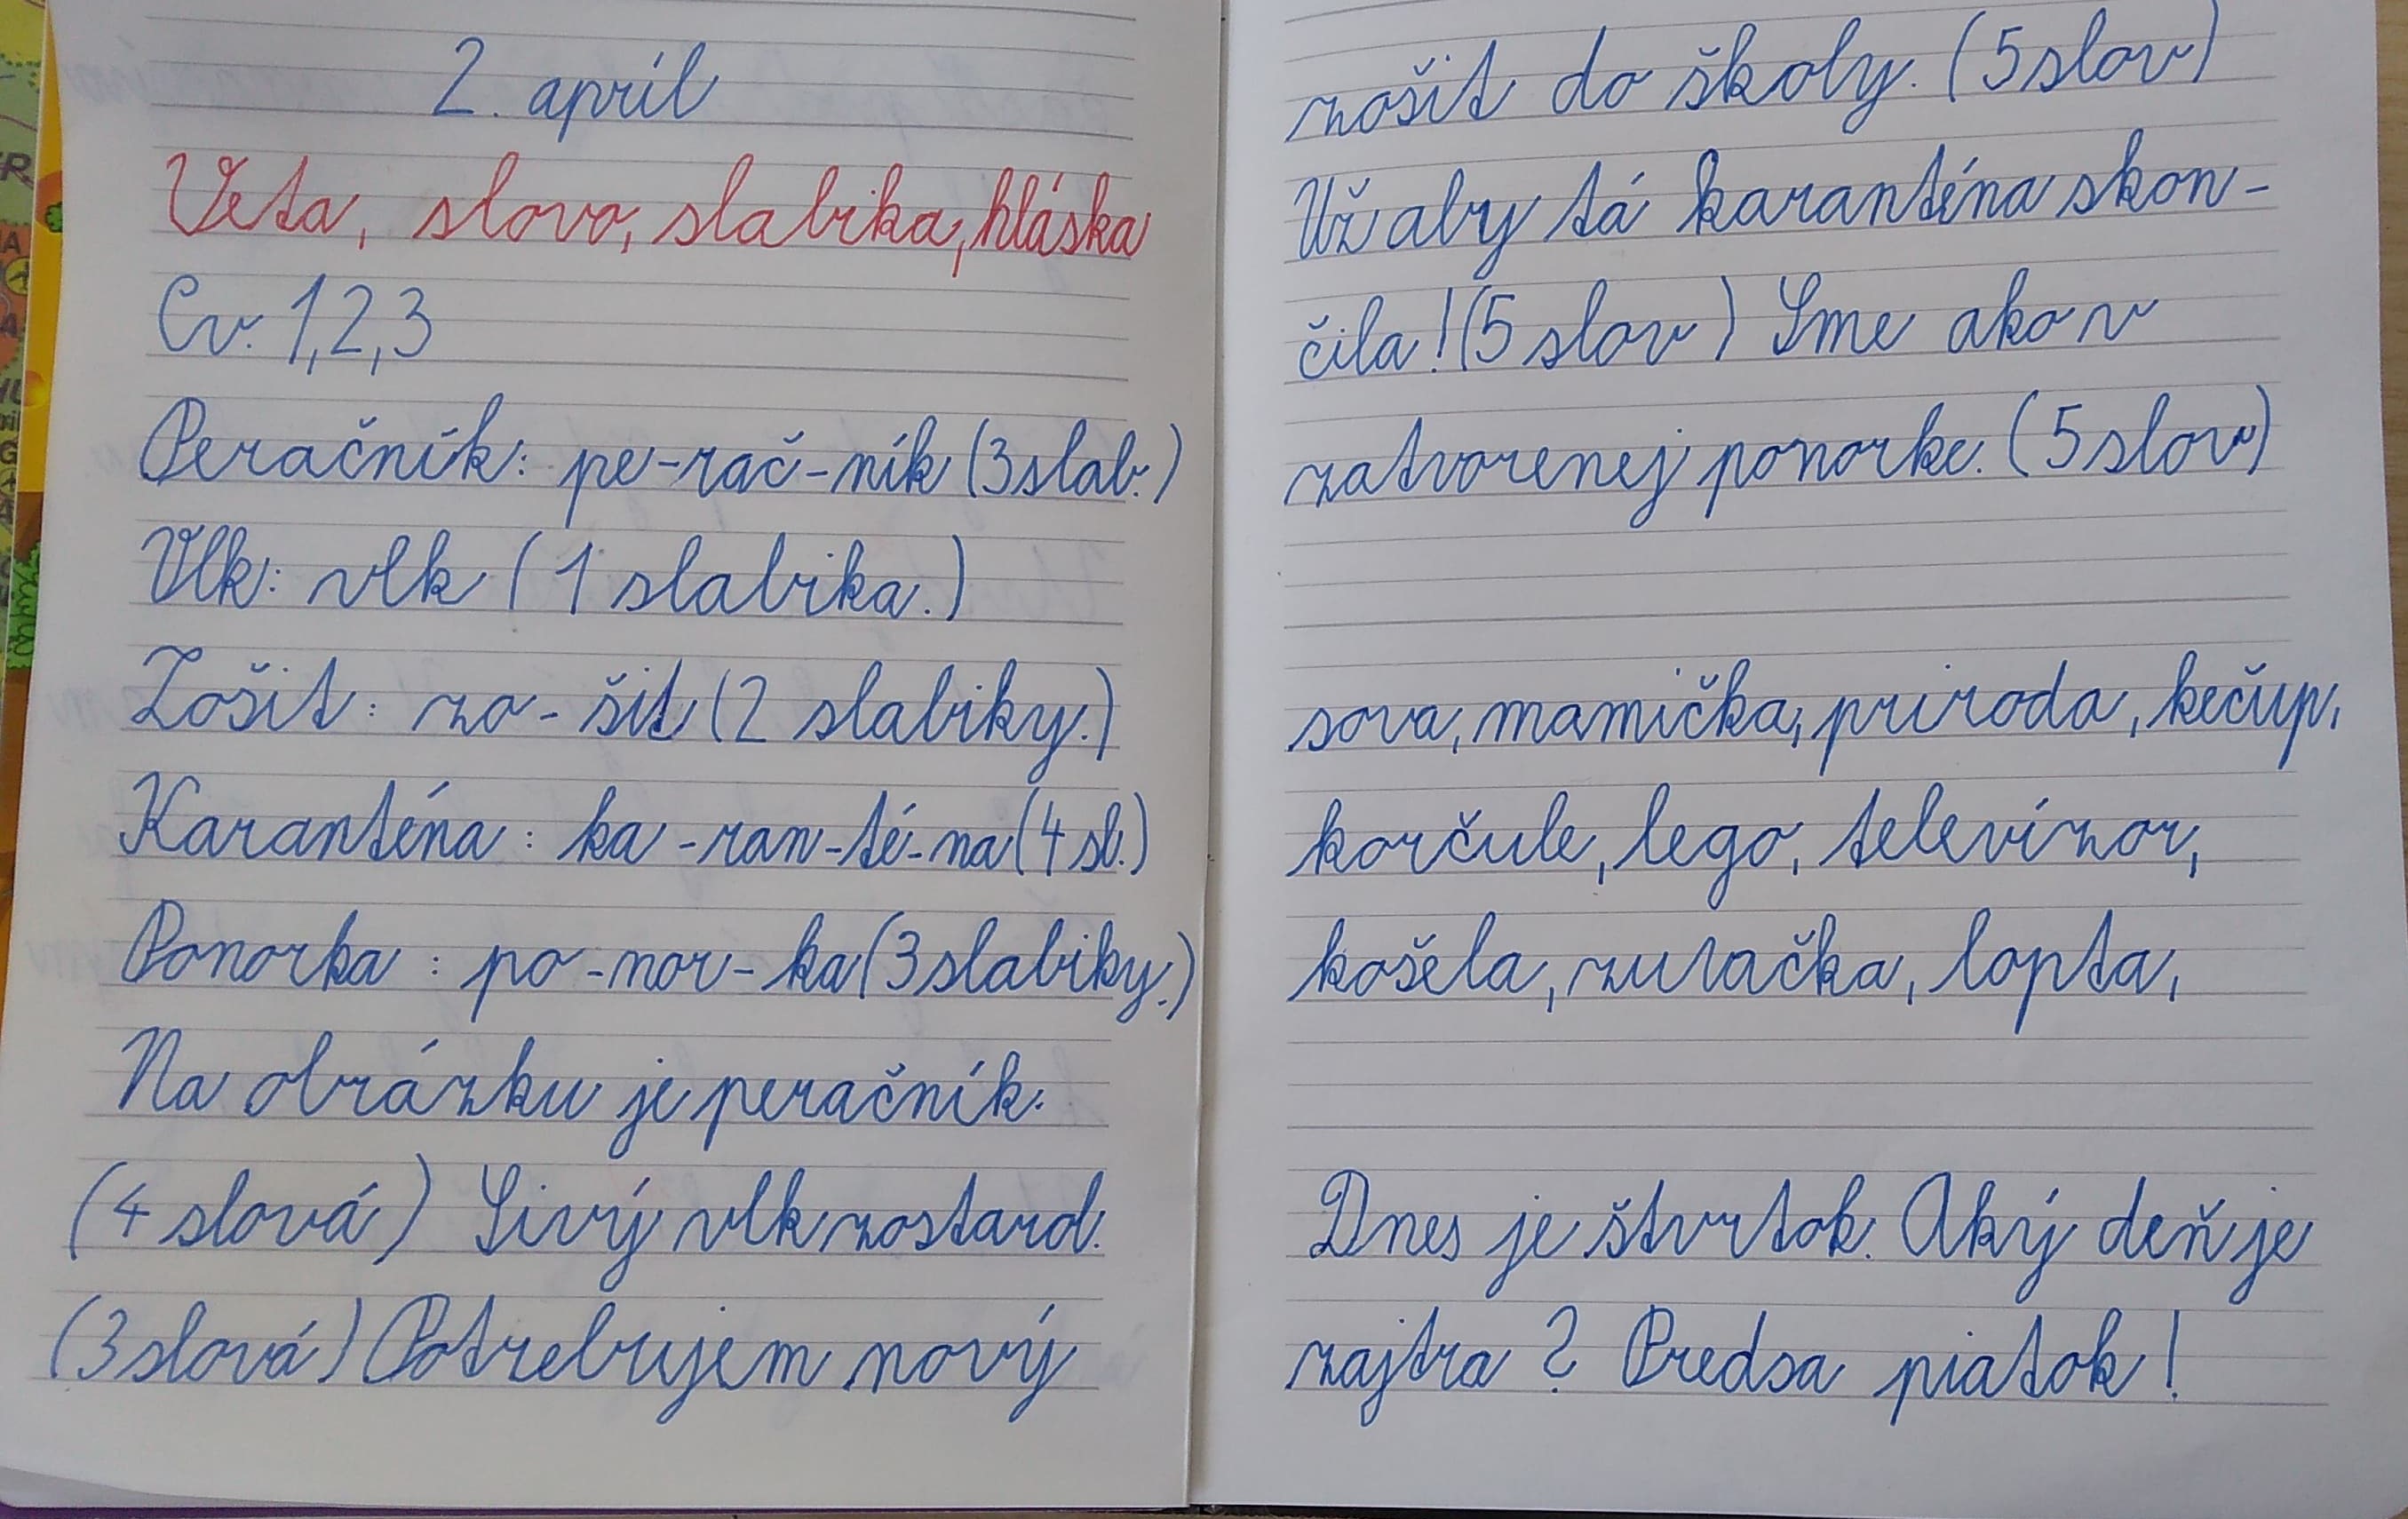 2. apríl
Veta, slovo, slabika, hláska
Cv. 1,2,3
Peračník: pe-rač-ník (3 slab.)
Vlk: vlk (1 slabika.)
Zošit: zo-šit (2 slabiky.)
Karanténa: ka-ran-té-na (4 sl.)
Ponorka: po-nor-ka (3 slabiky.)
Na obrázku je peračník.
(4 slová) Sivý vlk zostarol.
(3 slová) Potrebujem nový
zošit do školy. (5 slov)
Už aby tá karanténa skon-
čila! (5 slov) Sme ako v
zatvorenej ponorke. (5 slov)
sova, mamička, príroda, kečup,
korčule, lego, televízor,
košela, zuračka, lopta,
Dnes je štvrtok. Aký deň je
zajtra? Predsa piatok!